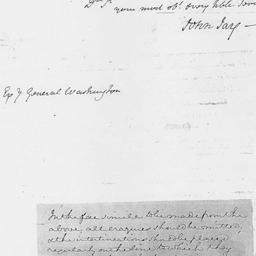 your most obt. & very hble Serv
John Jay —
Gen'l Washington
In the fac simile to be made from the
above, all erasures should be omitted,
& the interlineations should be placed
regularly on the line to which they